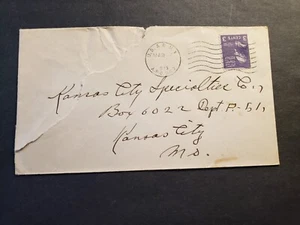 Kansas City Specialties Co.,
Box 6022 Dept P-51,
Kansas City
Mo.